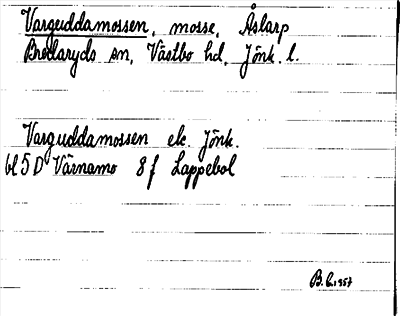 Varguddamossen, mosse, Åslarp
Bredaryds sn, Västbo hd, Jönk. l.
Varguddamossen ek. Jönk.
bl 5 D Värnamo 8 f Lappebol
B. L. 1957